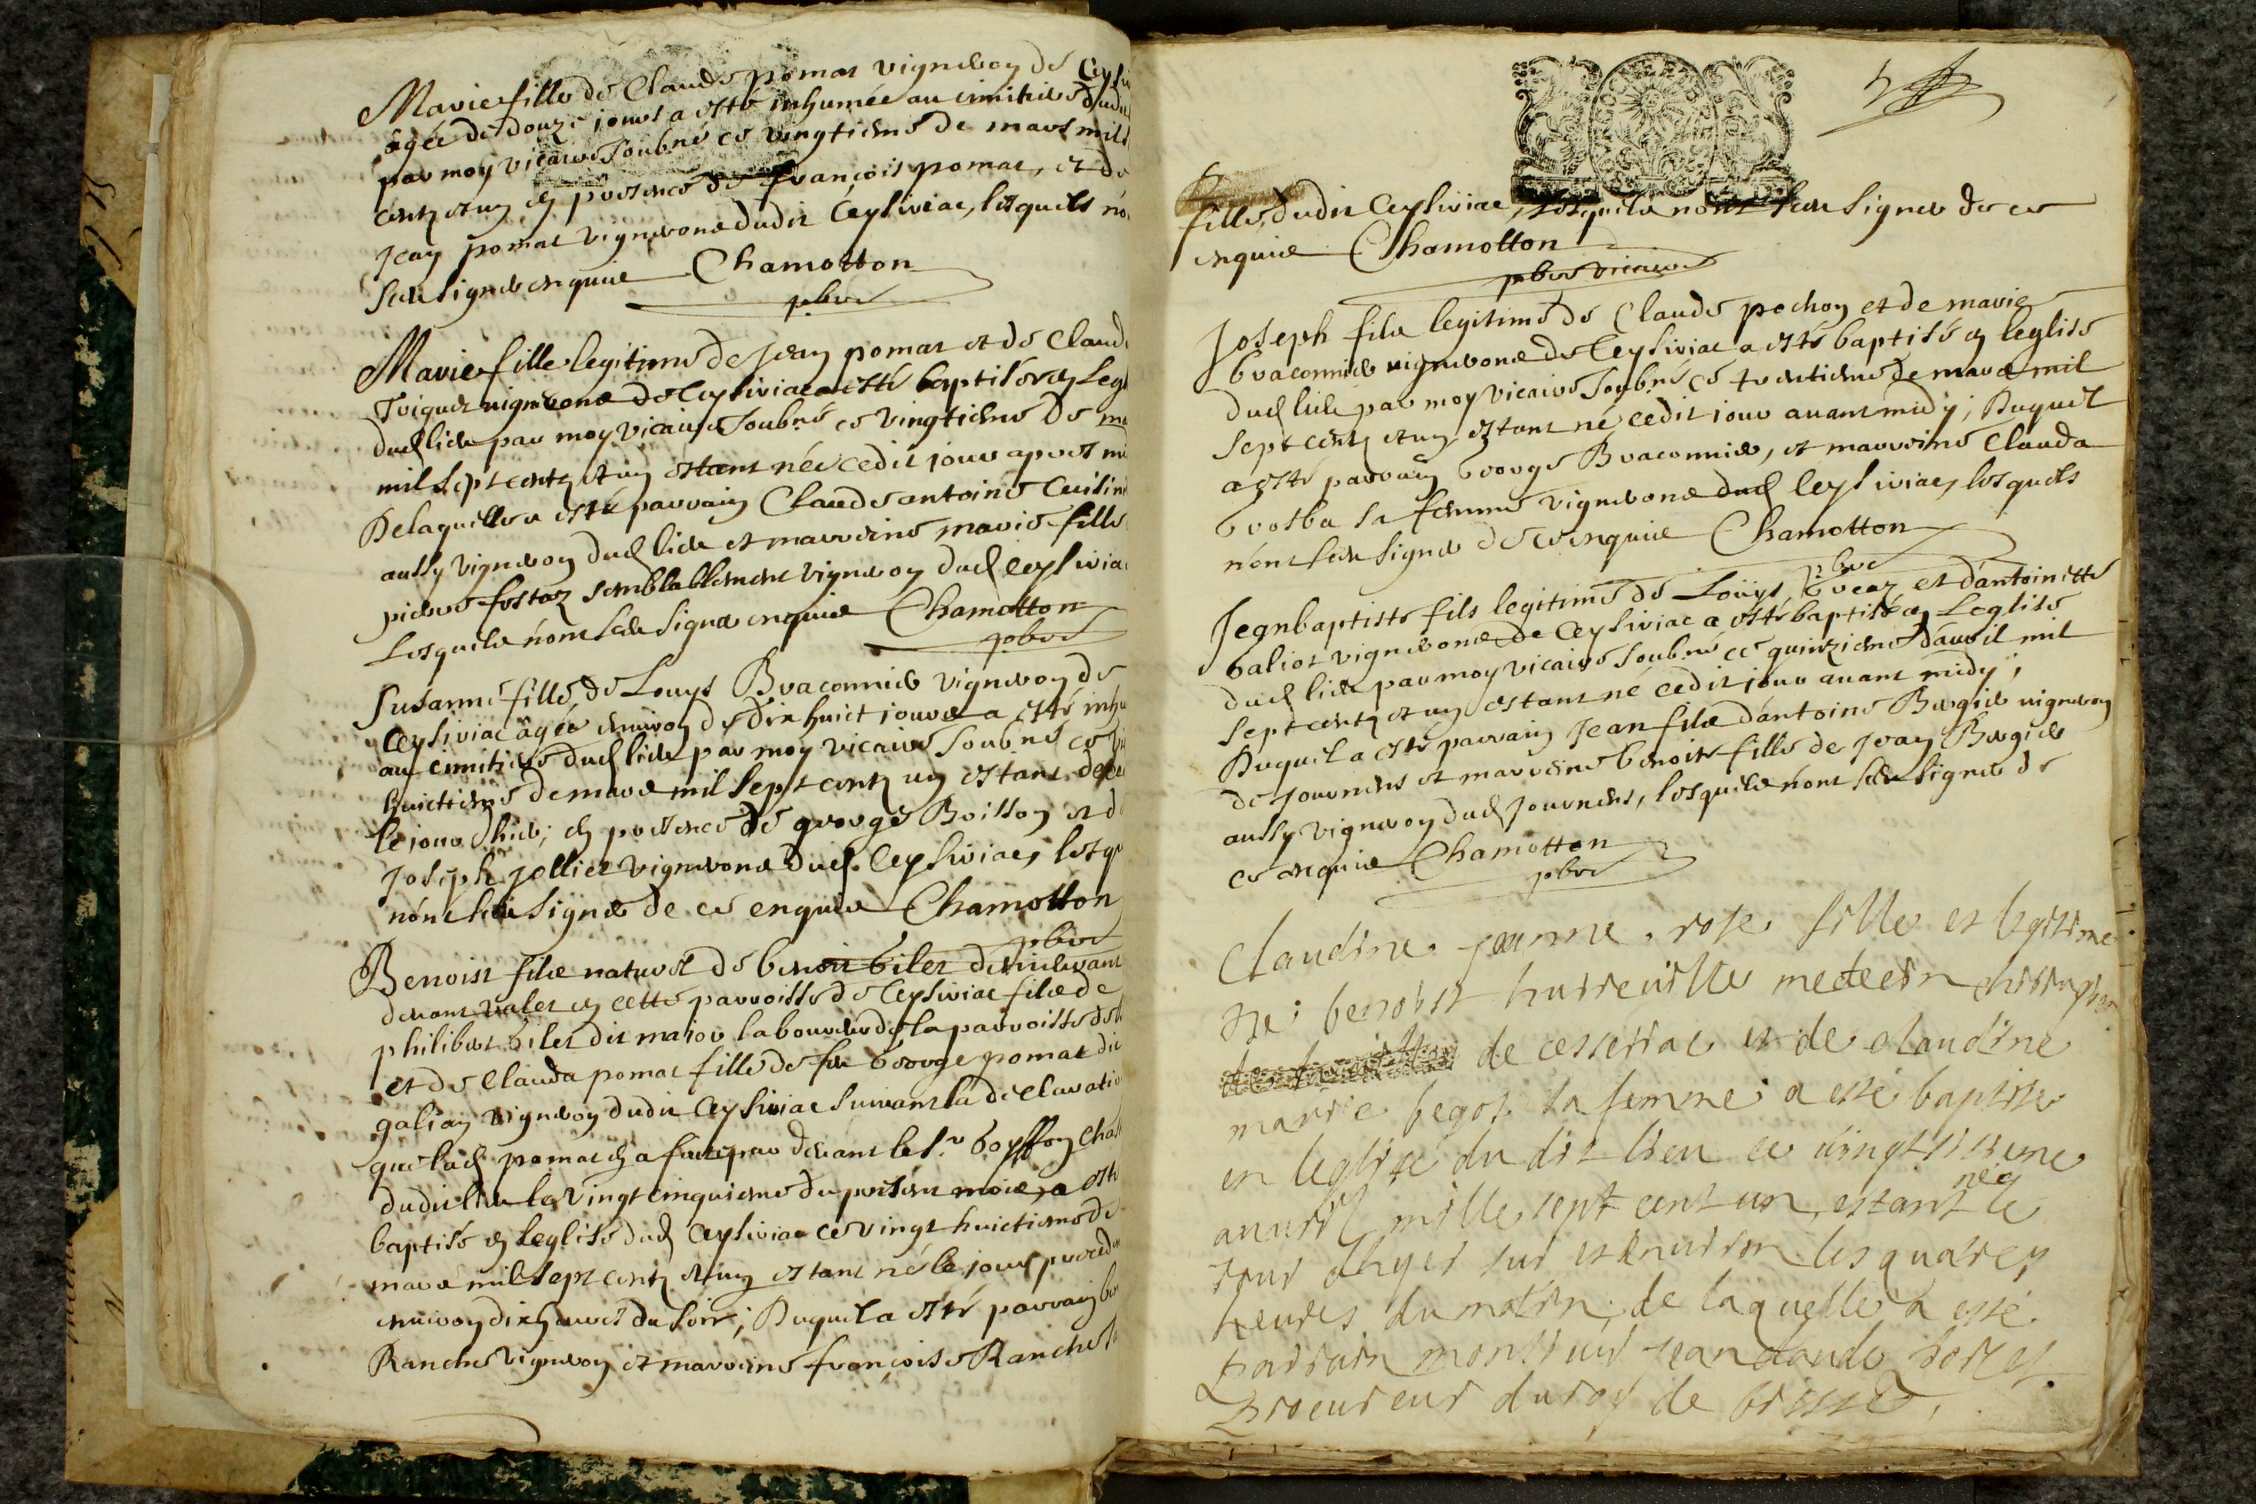 Marie fille de Claude pomat vigneron de Ceys
âgée de douze jours a esté inhumée au cimitiere dudi
par moy vicaire soubné ce vingtieme de mars mil s
centz et un en presence de françois pomat, et de
Jean pomat vignerons dudit Ceysiriac, lesquels nó
sceu signer enquis Chamotton
pbre
Marie fille legitime de Jean pomat et de Claud
vignerons de Ceysiriac a esté baptisée en Legl
dud lieu par moy vicaire soubné ce vingtieme de ma
mil sept centz et un estant née cedit jour apres mi
De laquelle a esté parrain Claude antoine
aussy vigneron dud lieu et marreine marie fille
pierre semblablement vigneron dud Ceysiria
Lesquels nónt sceu signer enquis Chamotton
pbre
Susanne fille de Louys Braconnier vigneron de
Ceysiriac âgée environ de dix huict jours a esté inhu
au cimitiere dud lieu par moy vicaire soubné ce vi
huictieme de mars mil sept centz un estant dece
le jour hier, en presence de george Boisson et d
Joseph Jellier vignerons dud Ceysiriac, lesqu
nónt sceu signer de ce enquis Chamotton
pbre
Benoist fils naturel de benoit bilet
devant valet en cette parroisse de Ceysiriac fils de
philibert bilet dit major laboureur de la parroisse de
et de Clauda pomat fille de fu george pomat dit
galian vigneron dudit Ceysiriac suivant la declaratio
que lad pomat en a faite par devant le Sr
dudit lieu le vingt cinquieme du present mois, a esté
baptisé en Leglise dud Ceysiriac ce vingt huictieme de
mars mil sept centz et un estant né le jour preced
environ dix heures du soir; Duquel a esté parrain be
Ranche vigneron et marreine françoise Ranche
fille, dudit Ceysiriac, lesquels nónt sceu signer de ce
enquis Chamotton
pbre vicaire
Joseph fils legitime de Claude pochon et de marie
braconnier vignerons de Ceysiriac a esté baptisé en leglise
dud lieu par moy vicaire soubné ce trentieme de mars mil
sept centz et un estant né cedit jour avant midy; Duquel
a esté parrain george Braconnier, et marreine Clauda
sa femme vignerons dud Ceysiriac, lesquels
nónt sceu signer de ce enquis Chamotton
pbre
Jean baptiste fils legitime de Loüys et dantoinette
baliot vignerons de Ceysiriac a esté baptisé en Leglise
dud lieu par moy vicaire soubné ce quinzieme davril mil
sept centz et un estant né cedit jour avant midy;
Duquel a esté parrain Jean fils dantoine Bergier vigneron
de Journens et marreine benoite fille de Jean Bergier
aussy vigneron dud Journens, lesquels nónt sceu signer de
ce enquis Chamotton
pbre
Claudine jeanne rose fille et legitime
benoist medecin
de cesseriac et de claudine
marie begot sa femme a esté baptisée
en leglise du dit lieu ce
avuril mille sept cent un, estant née le
jour dhyer sur et environ les quatre
heures du matin, de laquelle a esté
parrain monsieur jean claude
procureur du roy de bresse,